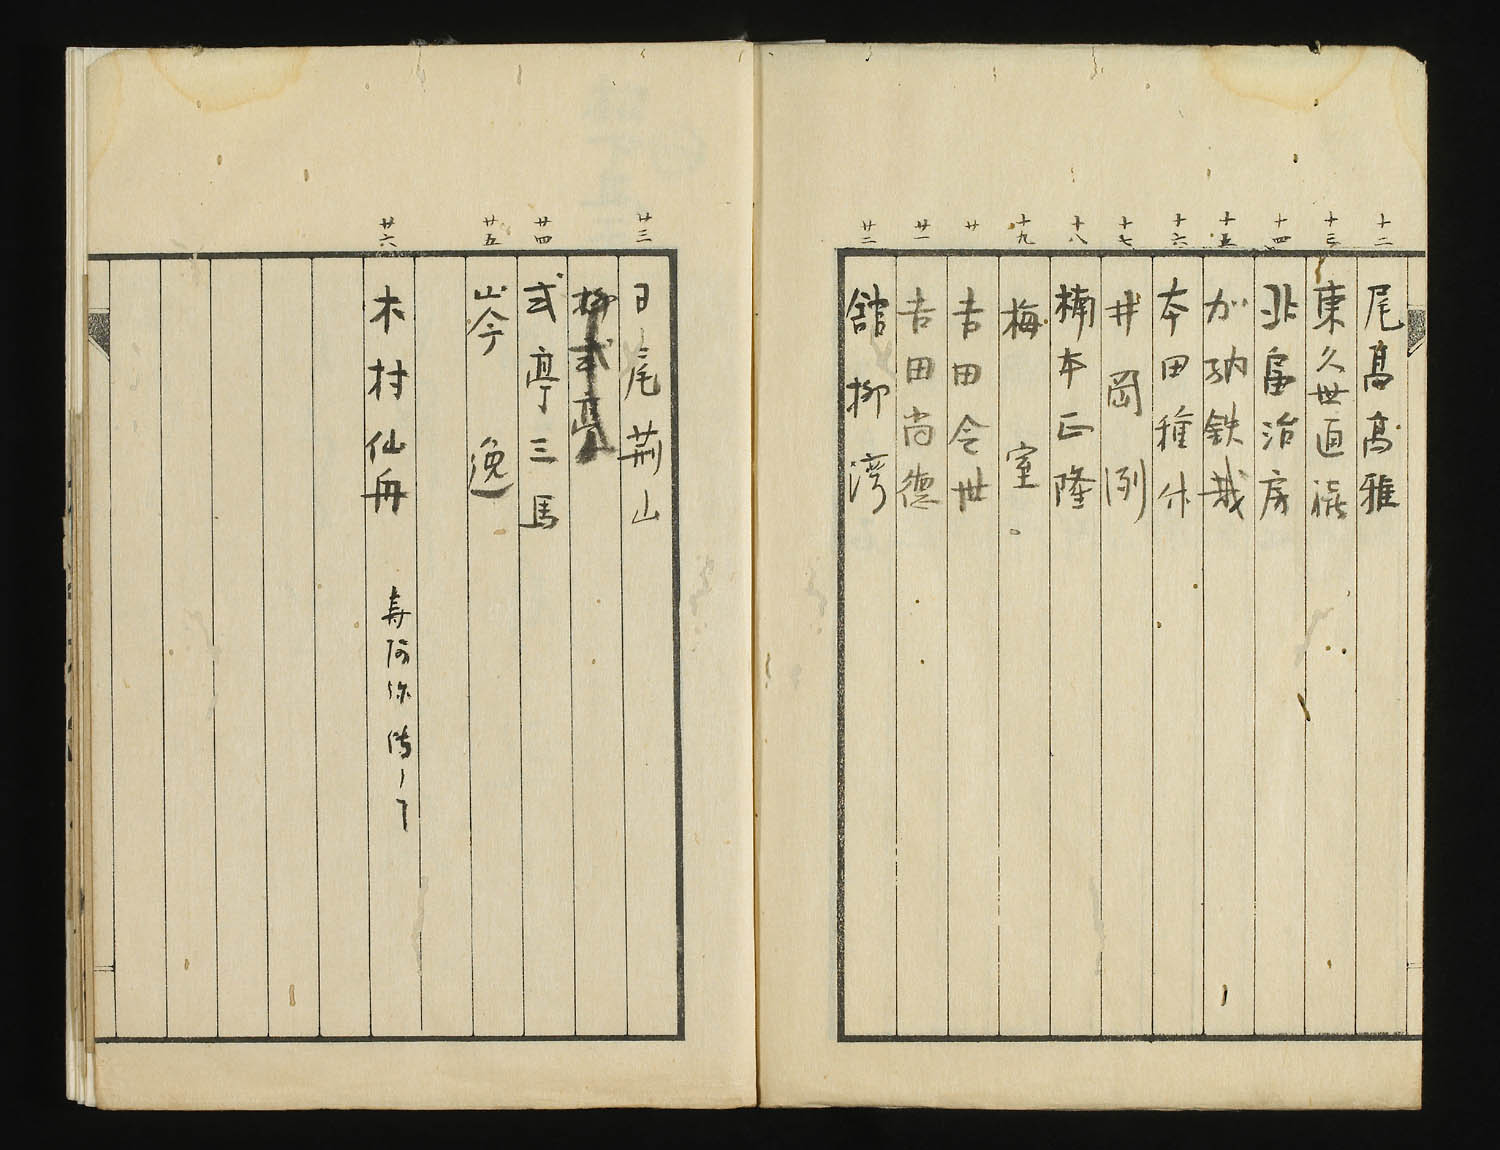 十二 尾高高雅
十三 東久世通禧
十四 北畠治房
十五 加納鉄哉
十六 本田種竹
十七 井岡冽
十八 楠本正隆
十九 梅室。
廿 吉田令世
廿一 吉田尚徳
廿二 舘柳湾
廿三 日尾荊山
柳式亭
廿四 式亭三馬
廿五 岑逸
廿六 木村仙舟 寿阿弥